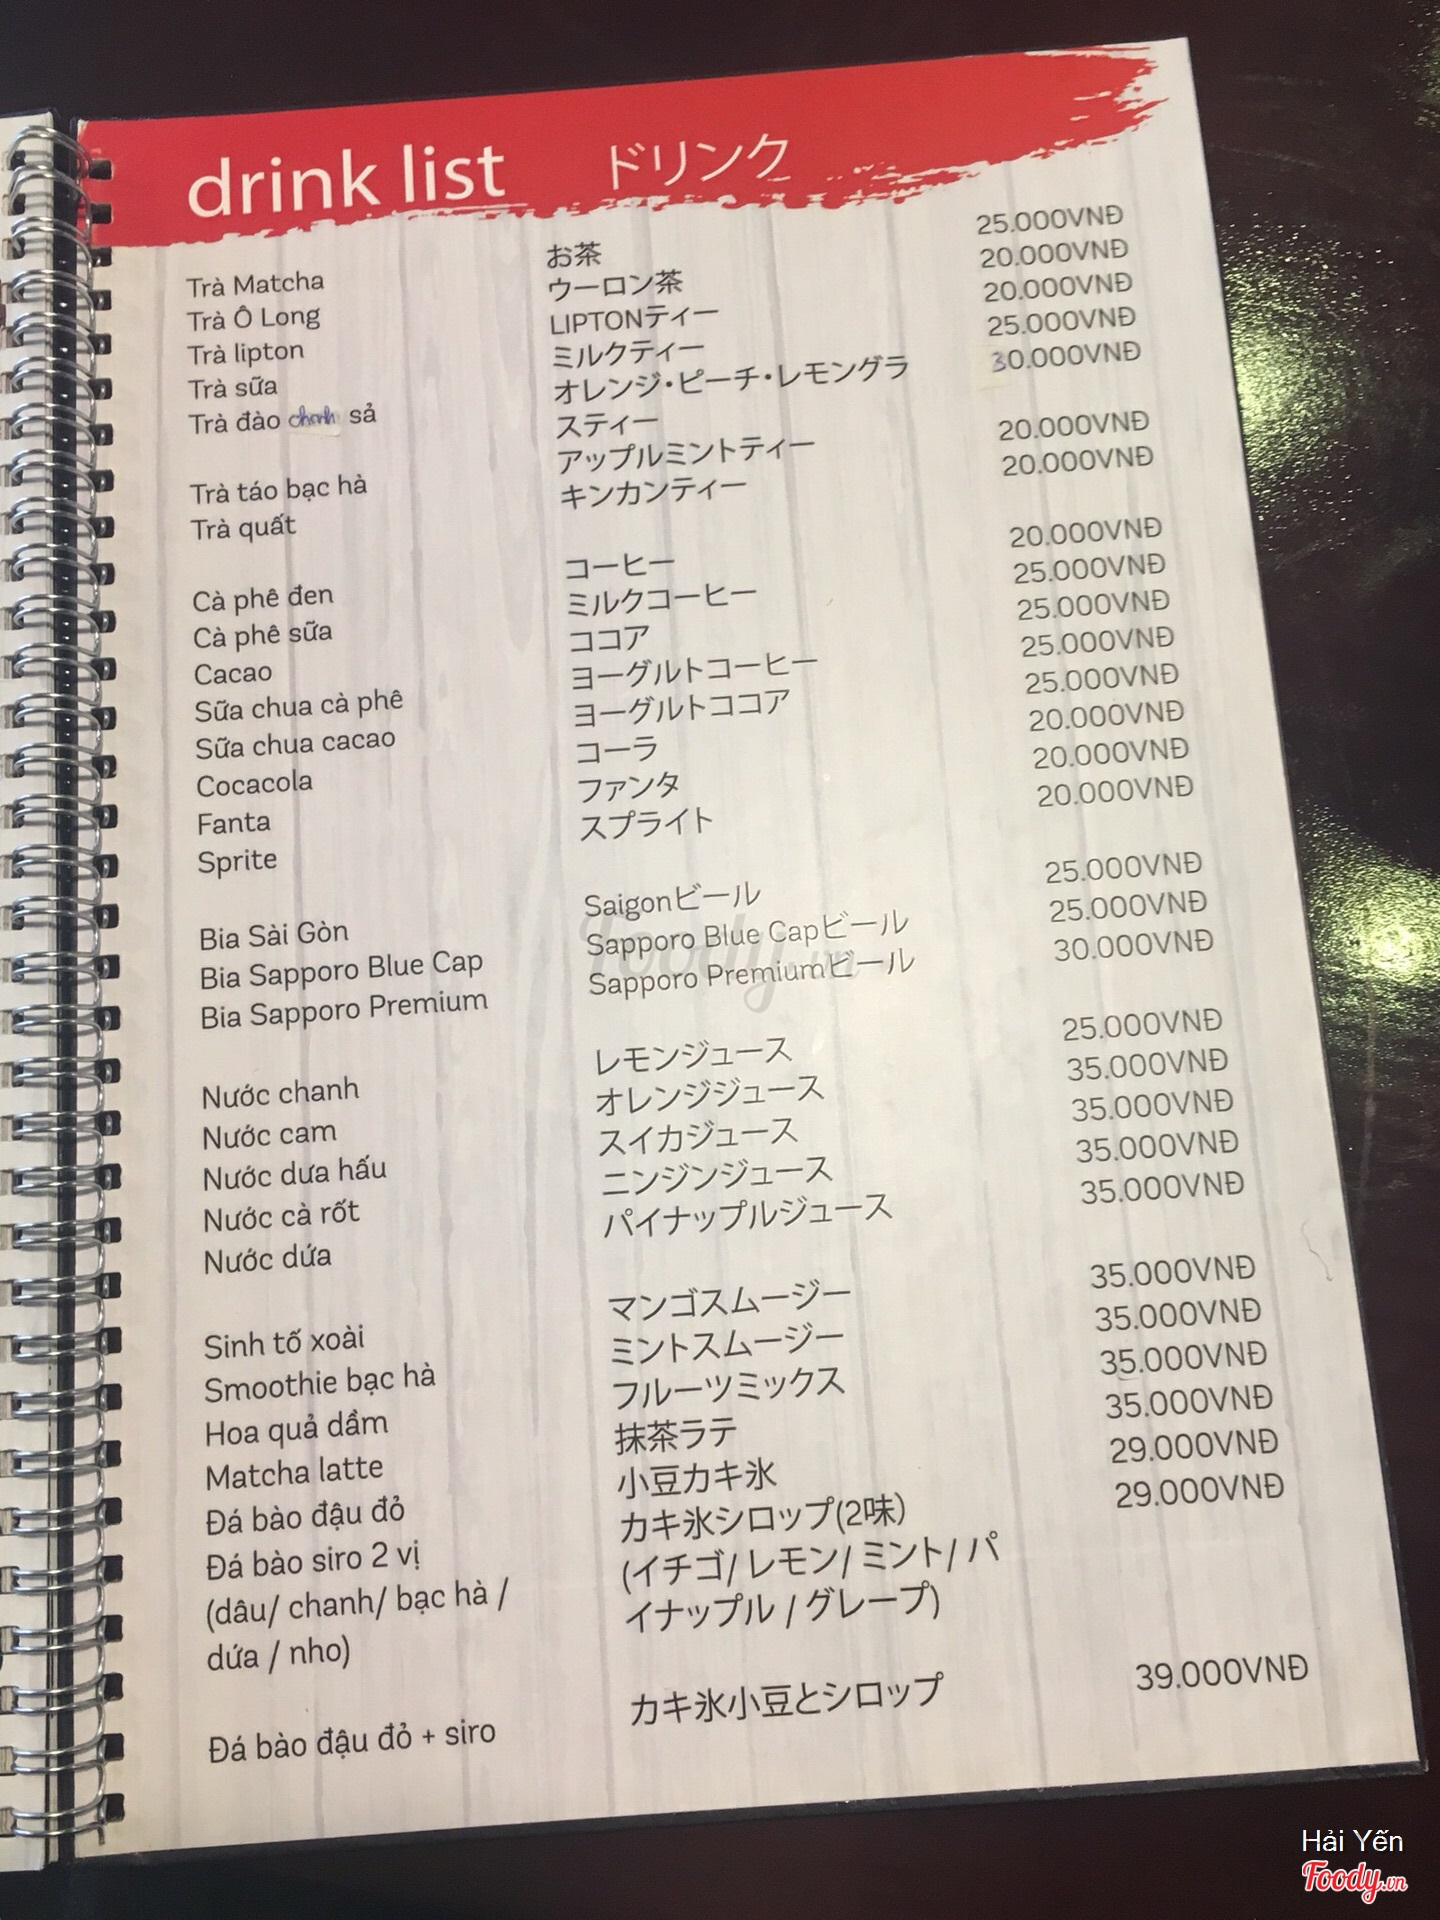 drink list ドリンク
Trà Matcha お茶 25.000VNĐ
Trà Ô Long ウーロン茶 20.000VNĐ
Trà lipton LIPTONティー 20.000VNĐ
Trà sữa ミルクティー 25.000VNĐ
Trà đào chanh sả オレンジ・ピーチ・レモングラ 30.000VNĐ
スティー
Trà táo bạc hà アップルミントティー 20.000VNĐ
Trà quất キンカンティー 20.000VNĐ
Cà phê đen コーヒー 20.000VNĐ
Cà phê sữa ミルクコーヒー 25.000VNĐ
Cacao ココア 25.000VNĐ
Sữa chua cà phê ヨーグルトコーヒー 25.000VNĐ
Sữa chua cacao ヨーグルトココア 25.000VNĐ
Cocacola コーラ 20.000VNĐ
Fanta ファンタ 20.000VNĐ
Sprite スプライト 20.000VNĐ
Bia Sài Gòn Saigonビール 25.000VNĐ
Bia Sapporo Blue Cap Sapporo Blue Capビール 25.000VNĐ
Bia Sapporo Premium Sapporo Premiumビール 30.000VNĐ
Nước chanh レモンジュース 25.000VNĐ
Nước cam オレンジジュース 35.000VNĐ
Nước dưa hấu スイカジュース 35.000VNĐ
Nước cà rốt ニンジンジュース 35.000VNĐ
Nước dứa パイナップルジュース 35.000VNĐ
Sinh tố xoài マンゴスムージー 35.000VNĐ
Smoothie bạc hà ミントスムージー 35.000VNĐ
Hoa quả dầm フルーツミックス 35.000VNĐ
Matcha latte 抹茶ラテ 35.000VNĐ
Đá bào đậu đỏ 小豆カキ氷 29.000VNĐ
Đá bào siro 2 vị カキ氷シロップ(2味) 29.000VNĐ
(dâu/ chanh/ bạc hà / (イチゴ/ レモン/ ミント/ パ
dứa / nho) イナップル / グレープ)
Đá bào đậu đỏ + siro カキ氷小豆とシロップ 39.000VNĐ
Foody.vn
Hải Yến
Foody.vn